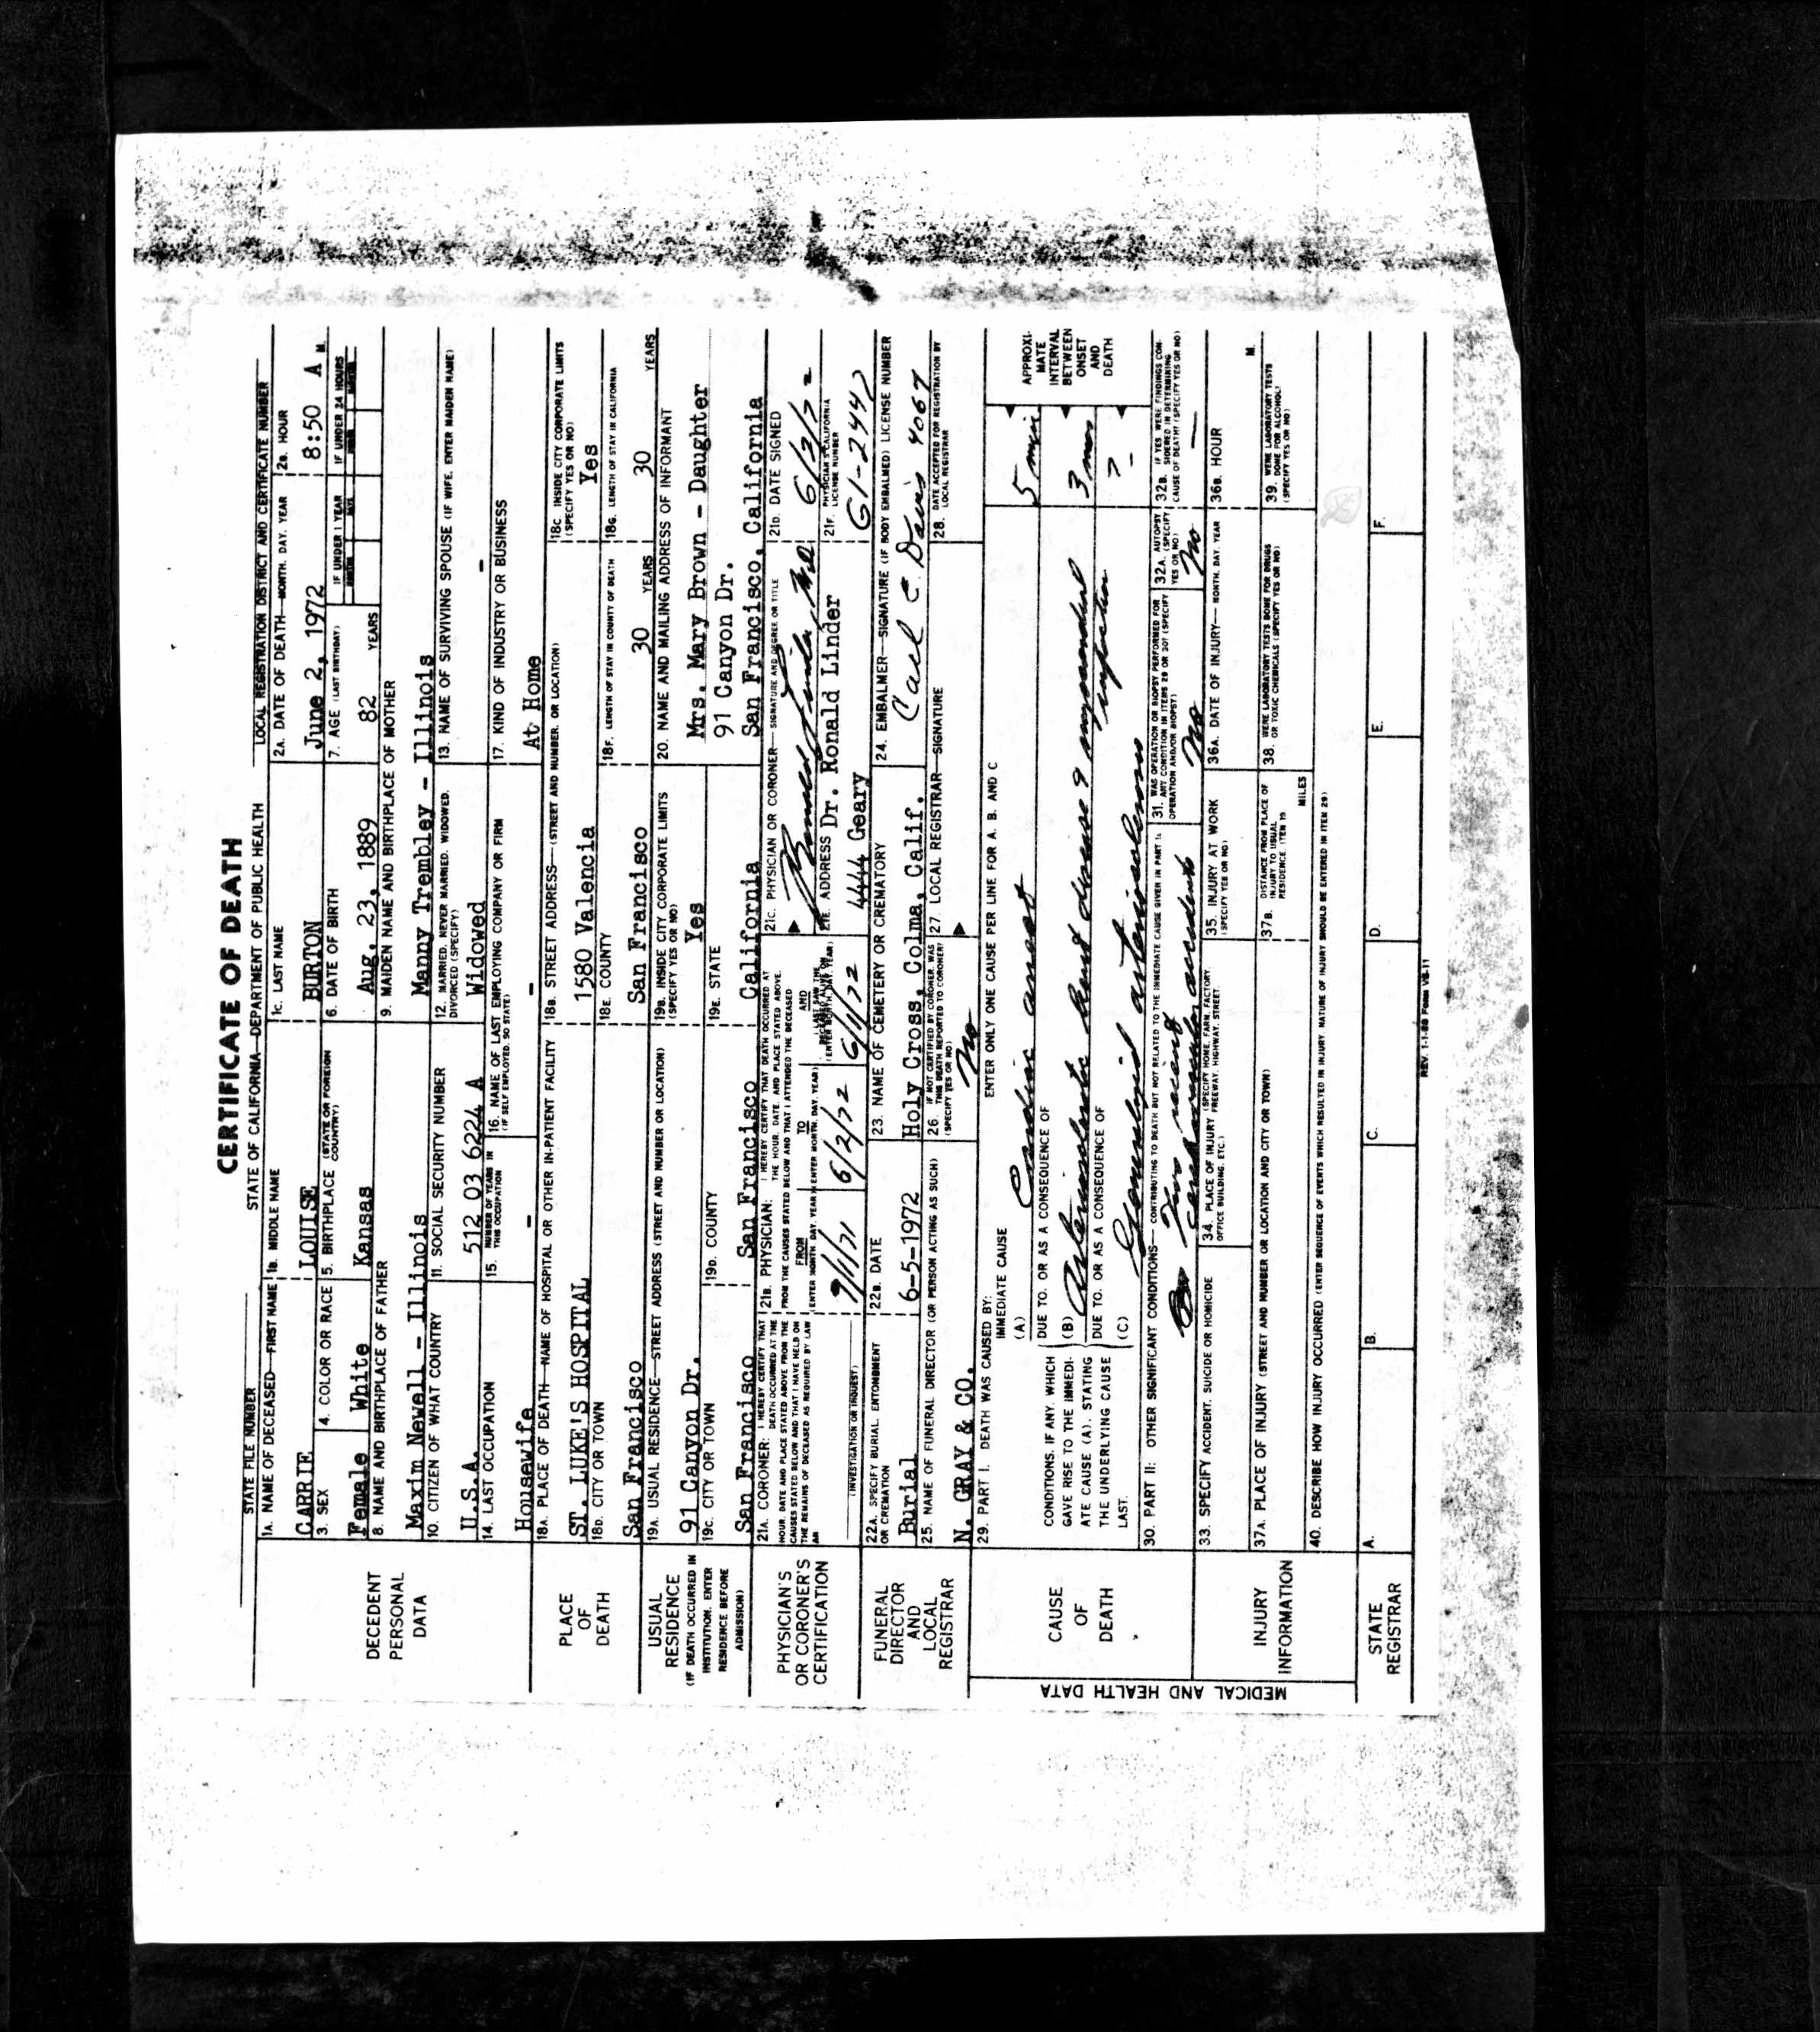 CERTIFICATE OF DEATH
STATE OF CALIFORNIA—DEPARTMENT OF PUBLIC HEALTH
STATE FILE NUMBER
LOCAL REGISTRATION DISTRICT AND CERTIFICATE NUMBER
DECEDENT PERSONAL DATA
1A. NAME OF DECEASED—FIRST NAME
CARRIE
1B. MIDDLE NAME
LOUISE
1C. LAST NAME
BURTON
2A. DATE OF DEATH—MONTH, DAY, YEAR
June 2, 1972
2B. HOUR
8:50 A M.
3. SEX
Female
4. COLOR OR RACE
White
5. BIRTHPLACE (STATE OR FOREIGN COUNTRY)
Kansas
6. DATE OF BIRTH
Aug. 23, 1889
7. AGE (LAST BIRTHDAY)
82 YEARS
IF UNDER 1 YEAR
IF UNDER 24 HOURS
8. NAME AND BIRTHPLACE OF FATHER
Maxim Newell - Illinois
9. MAIDEN NAME AND BIRTHPLACE OF MOTHER
Manny Trembley - Illinois
10. CITIZEN OF WHAT COUNTRY
U.S.A.
11. SOCIAL SECURITY NUMBER
512 03 6224 A
12. MARRIED, NEVER MARRIED, WIDOWED, DIVORCED (SPECIFY)
Widowed
13. NAME OF SURVIVING SPOUSE (IF WIFE, ENTER MAIDEN NAME)
-
14. LAST OCCUPATION
Housewife
15. NUMBER OF YEARS IN THIS OCCUPATION
-
16. NAME OF LAST EMPLOYING COMPANY OR FIRM (IF SELF EMPLOYED, SO STATE)
-
17. KIND OF INDUSTRY OR BUSINESS
At Home
PLACE OF DEATH
18A. PLACE OF DEATH—NAME OF HOSPITAL OR OTHER IN-PATIENT FACILITY
ST. LUKE'S HOSPITAL
18B. STREET ADDRESS—(STREET AND NUMBER, OR LOCATION)
1580 Valencia
18C. INSIDE CITY CORPORATE LIMITS (SPECIFY YES OR NO)
Yes
18D. CITY OR TOWN
San Francisco
18E. COUNTY
San Francisco
18F. LENGTH OF STAY IN COUNTY OF DEATH
30 YEARS
18G. LENGTH OF STAY IN CALIFORNIA
30 YEARS
USUAL RESIDENCE
(IF DEATH OCCURRED IN INSTITUTION, ENTER RESIDENCE BEFORE ADMISSION)
19A. USUAL RESIDENCE—STREET ADDRESS (STREET AND NUMBER OR LOCATION)
91 Canyon Dr.
19B. INSIDE CITY CORPORATE LIMITS (SPECIFY YES OR NO)
Yes
19C. CITY OR TOWN
San Francisco
19D. COUNTY
San Francisco
19E. STATE
California
20. NAME AND MAILING ADDRESS OF INFORMANT
Mrs. Mary Brown - Daughter
91 Canyon Dr.
San Francisco, California
PHYSICIAN'S OR CORONER'S CERTIFICATION
21A. CORONER: I HEREBY CERTIFY THAT DEATH OCCURRED AT THE HOUR, DATE AND PLACE STATED ABOVE FROM THE CAUSES STATED BELOW AND THAT I HAVE HELD ON THE REMAINS OF DECEASED AS REQUIRED BY LAW AN
(INVESTIGATION OR INQUEST)
21B. PHYSICIAN: I HEREBY CERTIFY THAT DEATH OCCURRED AT THE HOUR, DATE, AND PLACE STATED ABOVE FROM THE CAUSES STATED BELOW AND THAT I ATTENDED THE DECEASED
FROM (ENTER MONTH, DAY, YEAR)
9/1/71
TO (ENTER MONTH, DAY, YEAR)
6/2/72
AND LAST SAW THE DECEASED ALIVE ON (ENTER MONTH, DAY, YEAR)
6/1/72
21C. PHYSICIAN OR CORONER—SIGNATURE AND DEGREE OR TITLE
Ronald Linder MD
21D. DATE SIGNED
6/2/72
21E. ADDRESS
Dr. Ronald Linder
4444 Geary
21F. PHYSICIAN'S CALIFORNIA LICENSE NUMBER
G1-2447
FUNERAL DIRECTOR AND LOCAL REGISTRAR
22A. SPECIFY BURIAL, ENTOMBMENT OR CREMATION
Burial
22B. DATE
6-5-1972
23. NAME OF CEMETERY OR CREMATORY
Holy Cross, Colma, Calif.
24. EMBALMER—SIGNATURE (IF BODY EMBALMED) LICENSE NUMBER
Carl C. Davis 4067
25. NAME OF FUNERAL DIRECTOR (OR PERSON ACTING AS SUCH)
N. GRAY & CO.
26. IF NOT CERTIFIED BY CORONER, WAS THIS DEATH REPORTED TO CORONER? (SPECIFY YES OR NO)
No
27. LOCAL REGISTRAR—SIGNATURE
28. DATE ACCEPTED FOR REGISTRATION BY LOCAL REGISTRAR
MEDICAL AND HEALTH DATA
CAUSE OF DEATH
29. PART I. DEATH WAS CAUSED BY:
ENTER ONLY ONE CAUSE PER LINE FOR A, B, AND C
IMMEDIATE CAUSE
(A) Cardiac arrest
5 min
CONDITIONS, IF ANY, WHICH GAVE RISE TO THE IMMEDIATE CAUSE (A), STATING THE UNDERLYING CAUSE LAST.
DUE TO, OR AS A CONSEQUENCE OF
(B) Arteriosclerotic heart disease & myocardial infarction
3 mos
DUE TO, OR AS A CONSEQUENCE OF
(C) Generalized arteriosclerosis
?
APPROXIMATE INTERVAL BETWEEN ONSET AND DEATH
30. PART II: OTHER SIGNIFICANT CONDITIONS—CONTRIBUTING TO DEATH BUT NOT RELATED TO THE IMMEDIATE CAUSE GIVEN IN PART I.
cerebrovascular accidents
31. WAS OPERATION OR BIOPSY PERFORMED FOR ANY CONDITION IN ITEMS 29 OR 30? (SPECIFY OPERATION AND/OR BIOPSY)
No
32A. AUTOPSY (SPECIFY YES OR NO)
No
32B. IF YES, WERE FINDINGS CONSIDERED IN DETERMINING CAUSE OF DEATH? (SPECIFY YES OR NO)
—
INJURY INFORMATION
33. SPECIFY ACCIDENT, SUICIDE OR HOMICIDE
34. PLACE OF INJURY (SPECIFY HOME, FARM, FACTORY, FREEWAY, HIGHWAY, STREET, OFFICE BUILDING, ETC.)
35. INJURY AT WORK (SPECIFY YES OR NO)
36A. DATE OF INJURY—MONTH, DAY, YEAR
36B. HOUR
M.
37A. PLACE OF INJURY (STREET AND NUMBER OR LOCATION AND CITY OR TOWN)
37B. DISTANCE FROM PLACE OF INJURY TO USUAL RESIDENCE. (ITEM 19)
MILES
38. WERE LABORATORY TESTS DONE FOR DRUGS OR TOXIC CHEMICALS (SPECIFY YES OR NO)
39. WERE LABORATORY TESTS DONE FOR ALCOHOL? (SPECIFY YES OR NO)
40. DESCRIBE HOW INJURY OCCURRED (ENTER SEQUENCE OF EVENTS WHICH RESULTED IN INJURY. NATURE OF INJURY SHOULD BE ENTERED IN ITEM 29)
STATE REGISTRAR
A.
B.
C.
D.
E.
F.
REV. 1-1-69 FORM VS-11